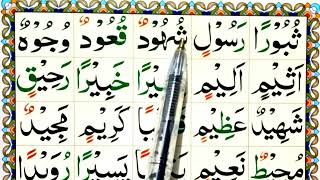 ثُبُورًا رَسُولٍ شُهُودٌ قُعُودٌ وُجُوهٌ
اَثِيْمٍ اَلِيْمٍ خَبِيْرًا رَحِيْقٍ
شَهِيْدٌ عَظِيْمٍ كَرِيْمٍ مَجِيْدٌ
مُحِيْطٌ نَعِيْمٍ يَسِيْرًا رُوَيْدًا